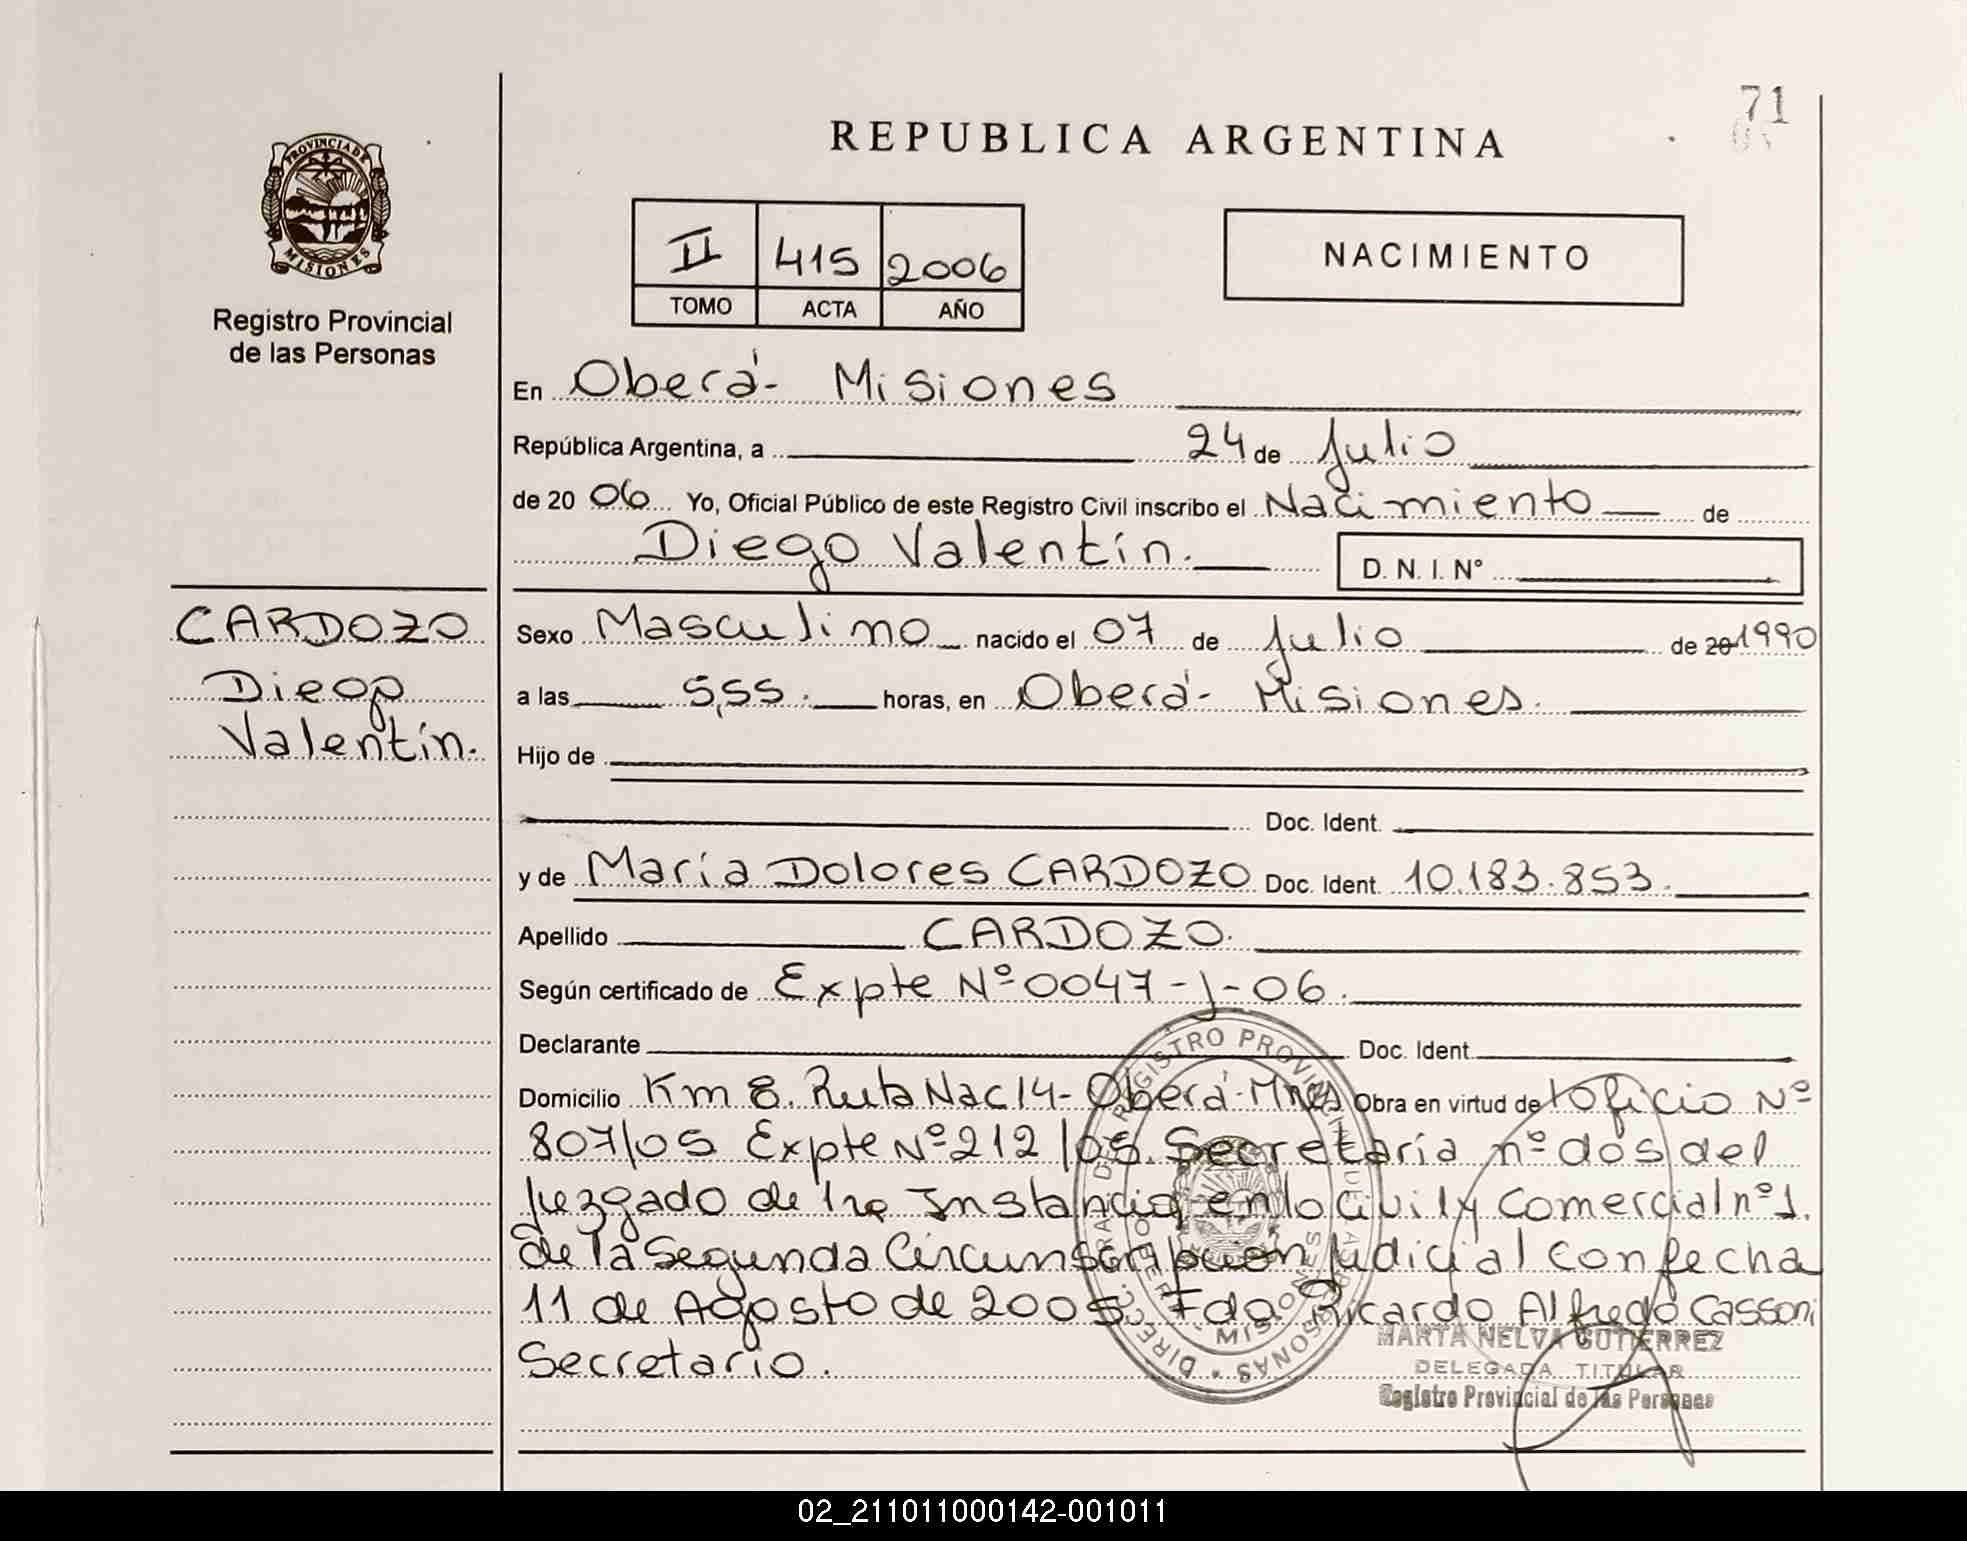 71
REPUBLICA ARGENTINA
PROVINCIA DE
MISIONES
Registro Provincial
de las Personas
II 415 2006
TOMO ACTA AÑO
NACIMIENTO
En Oberá - Misiones
República Argentina, a 24 de Julio
de 20 06 Yo, Oficial Público de este Registro Civil inscribo el Nacimiento de
Diego Valentín.
D. N. I. N°
CARDOZO
Diego
Valentín.
Sexo Masculino nacido el 07 de Julio de 20 1990
a las 5,55. horas, en Oberá - Misiones.
Hijo de
Doc. Ident.
y de María Dolores CARDOZO Doc. Ident. 10.183.853.
Apellido CARDOZO.
Según certificado de Expte Nº 0047-J-06.
Declarante Doc. Ident.
Domicilio Km 8. Ruta Nac 14 - Oberá - Mnes Obra en virtud de Oficio Nº
807/05 Expte Nº 212/05. Secretaría nº dos del
Juzgado de 1ra Instancia en lo Civil y Comercial nº 1.
de la Segunda Circunscripción Judicial con fecha
11 de Agosto de 2005. Fdo. Ricardo Alfredo Cassoni
Secretario.
DIREC. GRAL. DE REGISTRO PROVINCIAL DE LAS PERSONAS
MISIONES
MARTA NELVA GUTIERREZ
DELEGADA TITULAR
Registro Provincial de las Personas
02_211011000142-001011